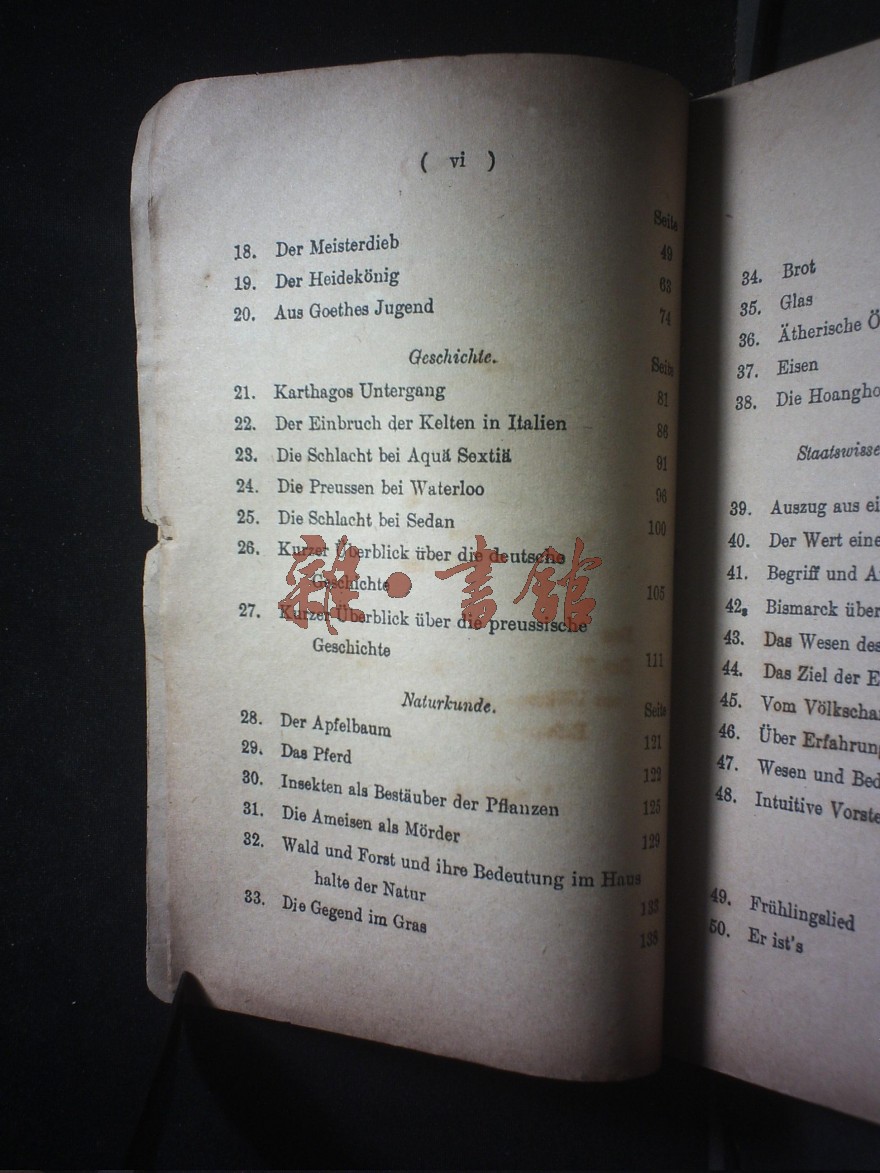 ( vi )
Seite
18. Der Meisterdieb 49
19. Der Heidekönig 63
20. Aus Goethes Jugend 74
Geschichte.
Seite
21. Karthagos Untergang 81
22. Der Einbruch der Kelten in Italien 86
23. Die Schlacht bei Aquä Sextiä 91
24. Die Preussen bei Waterloo 96
25. Die Schlacht bei Sedan 100
26. Kurzer Überblick über die deutsche
Geschichte 105
27. Kurzer Überblick über die preussische
Geschichte 111
Naturkunde.
Seite
28. Der Apfelbaum 121
29. Das Pferd 122
30. Insekten als Bestäuber der Pflanzen 125
31. Die Ameisen als Mörder 129
32. Wald und Forst und ihre Bedeutung im Haus
halte der Natur 133
33. Die Gegend im Gras 138
雜·書館
34. Brot
35. Glas
36. Ätherische Ö
37. Eisen
38. Die Hoangho
Staatswisse
39. Auszug aus ei
40. Der Wert eine
41. Begriff und A
42. Bismarck über
43. Das Wesen des
44. Das Ziel der E
45. Vom Völkscha
46. Über Erfahrung
47. Wesen und Bed
48. Intuitive Vorste
49. Frühlingslied
50. Er ist's